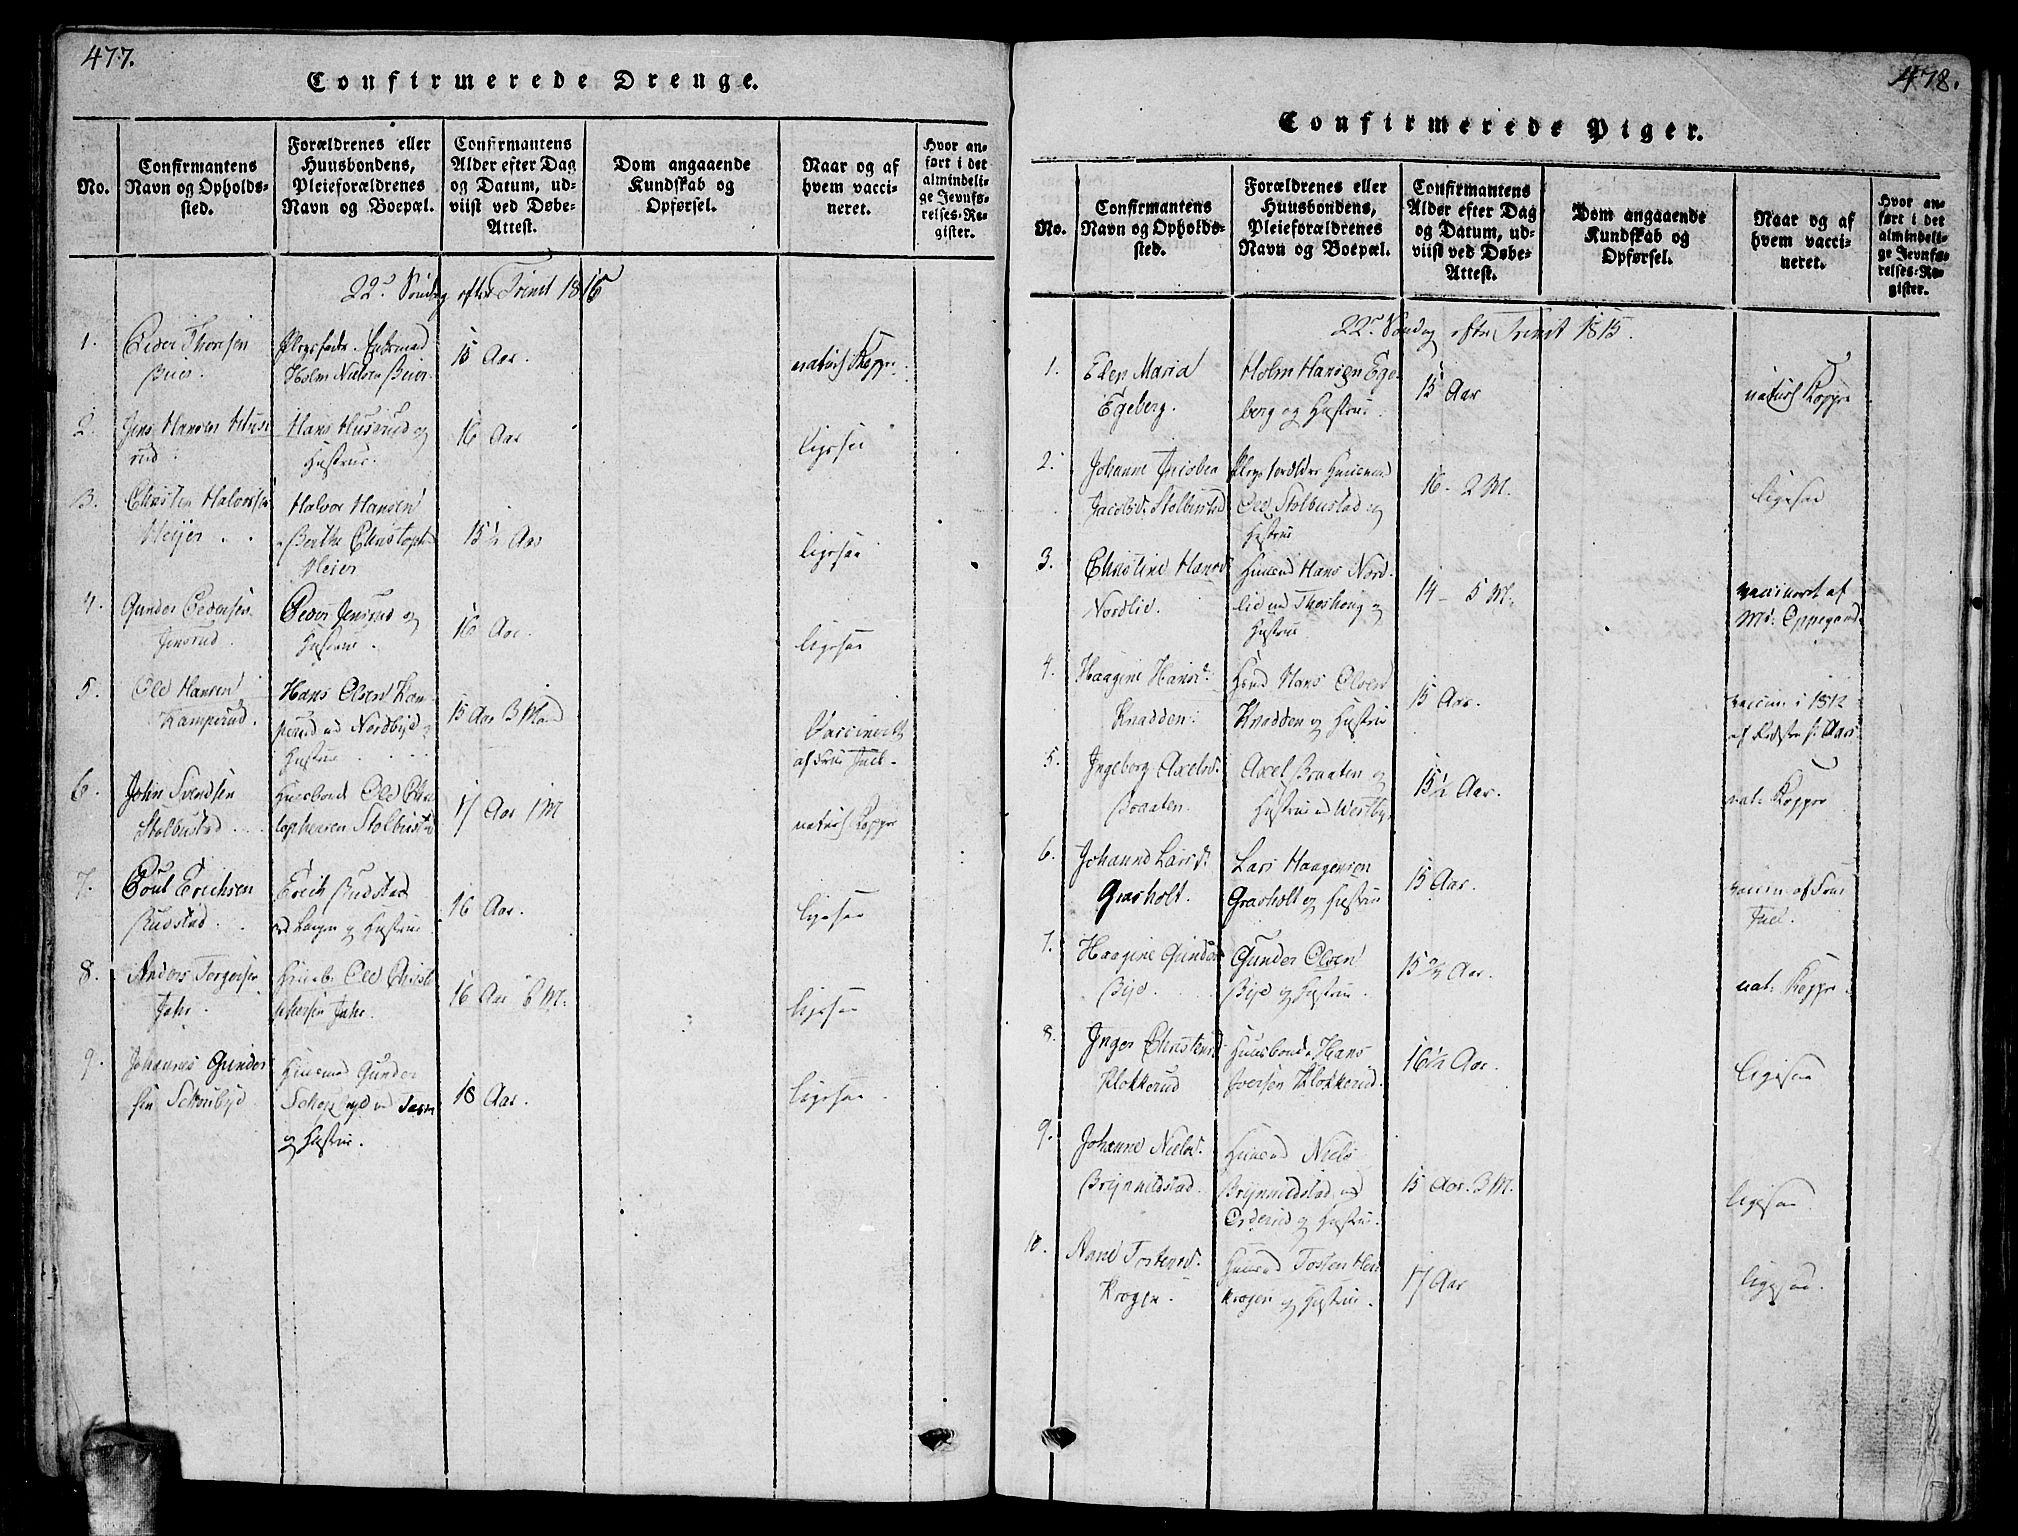 477.
Confirmerede Drenge.
No.
Confirmantens
Navn og Opholds-
sted.
Forældrenes eller
Huusbondens,
Pleieforældrenes
Navn og Boepæl.
Confirmantens
Alder efter Dag
og Datum, ud-
viist ved Døbe-
Attest.
Dom angaaende
Kundskab og
Opførsel.
Naar og af
hvem vacci-
neret.
Hvor an-
ført i det
almindeli-
ge Jevnfø-
relses-Re-
gister.
22 Søndag efter Trinit 1815
1.
Peder Thoresen
Buer.
Holm Nielsen Buer.
15 Aar.
naturl Kopper.
2.
Jens Hansen Huse
rud.
Hans Huserud og
Hustrue.
16 Aar
ligesaa
3.
Christen Halvorsen
Heijer
Halvor Hansen
Berthe Christoph
Heier
15½ Aar
ligesaa
4.
Gunder Pedersen
Jensrud.
Peder Jensrud og
Hustrue.
16 Aar.
ligesaa
5.
Ole Hansen
Kamperud.
Hans Olsen Kam
perud ved Nordbye og
Hustrue
15 Aar 3 Maan
Vaccineret
af Frue Juel.
6.
John Svendsen
Stolbustad
Huusbond Ole Chri
tophersen Stolbustad
17 Aar 1 M
naturl Kopper
7.
Poul Erichsen
Rudstad
Erich Rudstad
og Hustrue
16 Aar.
ligesaa
8.
Anders Torgersen
Jahr.
Huusb. Ole Christ
ophersen Jahr.
16 Aar 6 M.
ligesaa
9.
Johannes Gunder
sen Schoubye
Huusmd Gunder
og Hustrue.
18 Aar.
ligesaa
478.
Confirmerede Piger.
No.
Confirmantens
Navn og Opholds-
sted.
Forældrenes eller
Huusbondens,
Pleieforældrenes
Navn og Boepæl.
Confirmantens
Alder efter Dag
og Datum, ud-
viist ved Døbe-
Attest.
Dom angaaende
Kundskab og
Opførsel.
Naar og af
hvem vacci-
neret.
Hvor an-
ført i det
almindeli-
ge Jevnfø-
relses-Re-
gister.
22 Søndag efter Trinit 1815.
1.
Elen Maria
Egeberg.
Holm Hansen Ege-
berg og Hustrue.
15 Aar
naturl Kopper
2.
Johanne Jacobea
Jacobsd. Stolbustad
Pleyeforældre Huusmd
Ole Stolbustad og
Hustrue
16 - 2 M.
ligesaa
3.
Christine Hansd.
Nordlie.
Huusmd Hans Nord-
lie og
Hustrue
14 - 5 M.
vaccineret af
Md. Oppegaard.
4.
Haagine Hansd.
Knadden.
Hans Olsen
Knadden og Hustrue
15 Aar.
vaccin i 1812
5.
Ingeborg Axelsd.
Braaten.
Axel Braaten og
Hustrue ved Westbye
15½ Aar.
nat. Kopper
6.
Johanne Larsd.
Grasholt.
Lars Haagensen
Grasholt og Hustrue
15 Aar.
vaccin af Frue
Juel.
7.
Haagine Gunders
Bye.
Gunder Olsen
Bye og Hustrue.
15 ¾ Aar.
nat. Kopper.
8.
Inger Christensd
Klokkerud
Huusbonde Hans
Iversen Klokkerud.
16½ Aar.
ligesaa
9.
Johanne Nielsd.
Brynnildstad.
Huusmd Niels
Brynnildstad ved
Orderud og Hustrue.
15 Aar. 3 M.
ligesaa
10.
Anne Tostensd.
Krogen.
Huusmd Tosten
Krogen og Hustrue.
17 Aar
ligesaa.